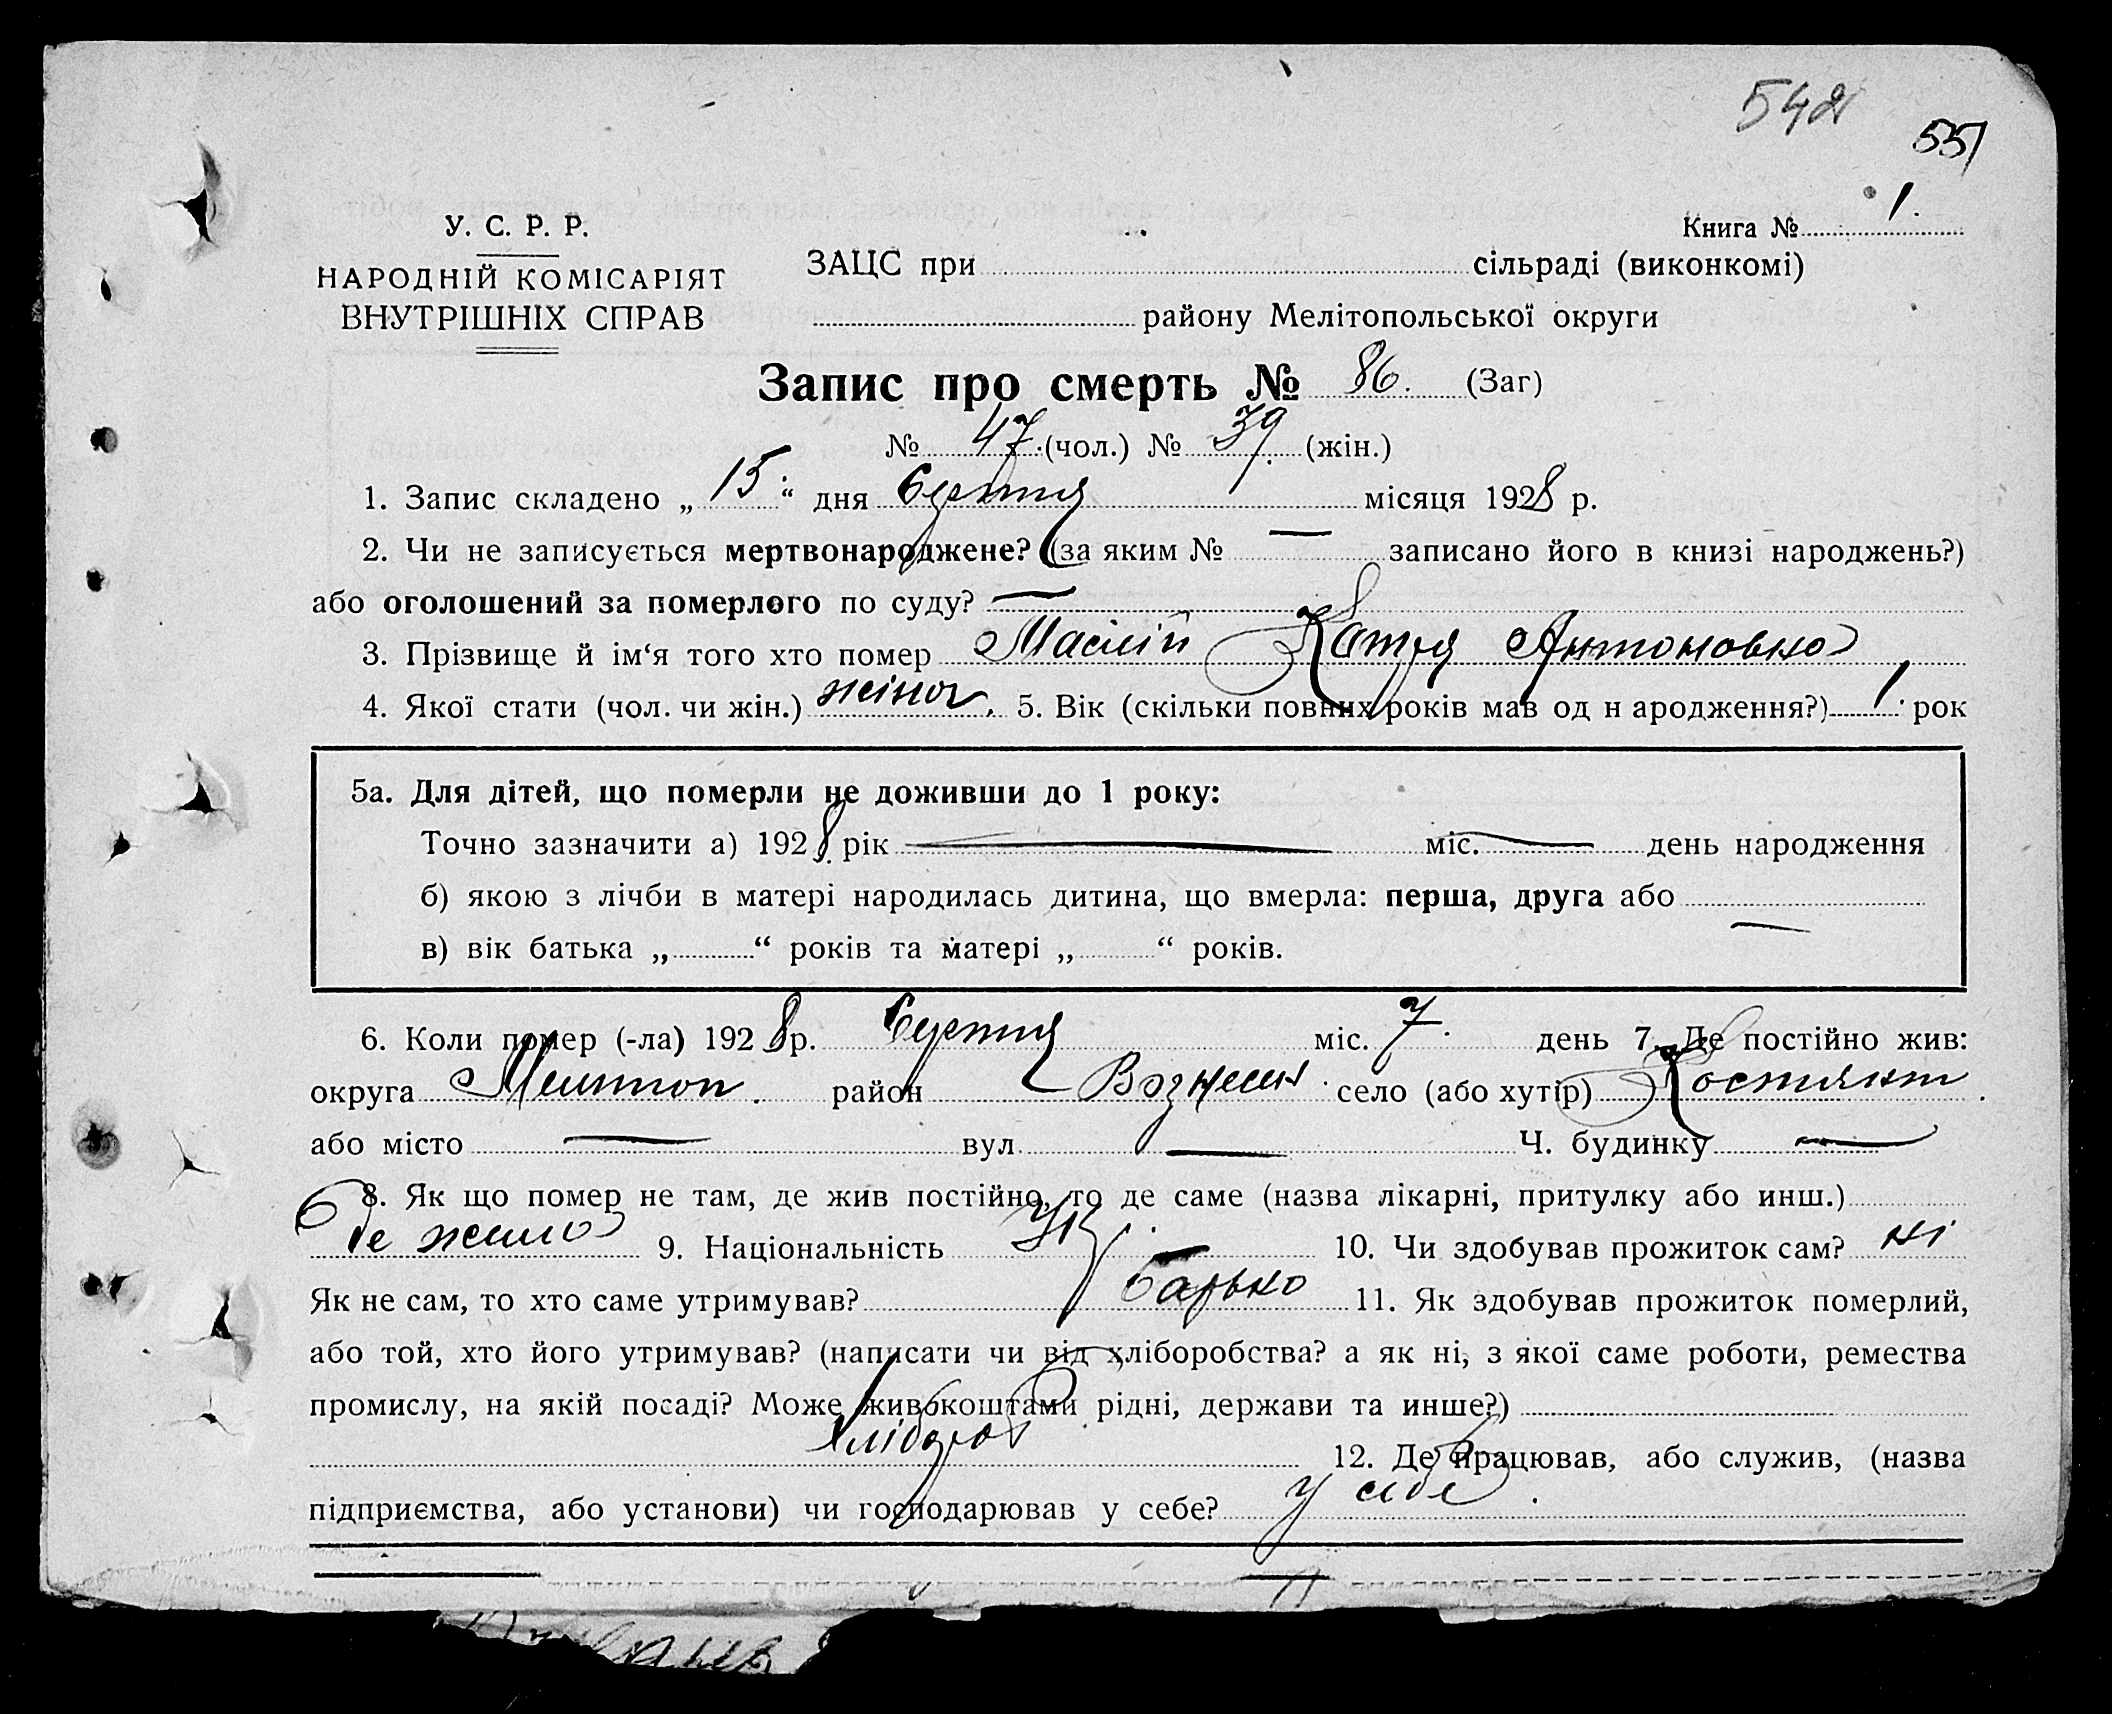 542
551
У. С. Р. Р.
НАРОДНІЙ КОМІСАРІЯТ
ВНУТРІШНІХ СПРАВ
Книга № 1.
ЗАЦС при сільраді (виконкомі)
району Мелітопольської округи
Запис про смерть № 86. (Заг)
№ 47. (чол.) № 39. (жін.)
1. Запис складено „ 15 “ дня Серпня місяця 1928 р.
2. Чи не записується мертвонароджене? (за яким № — записано його в книзі народжень?)
або оголошений за померлого по суду? —
3. Прізвище й ім‘я того хто помер Маслій Катря Антоновна
4. Якої стати (чол. чи жін.) жіноч. 5. Вік (скільки повних років мав од н ародження?) 1 рок
5а. Для дітей, що померли не доживши до 1 року:
Точно зазначити а) 1928 рік — міс. — день народження
б) якою з лічби в матері народилась дитина, що вмерла: перша, друга або —
в) вік батька „ “ років та матері „ “ років.
6. Коли помер (-ла) 1928 р. Серпня міс. 7. день 7. Де постійно жив:
округа Мелитоп. район Вознесен село (або хутір) Костянт
або місто — вул. — Ч. будинку —
8. Як що помер не там, де жив постійно, то де саме (назва лікарні, притулку або инш.)
де жила 9. Національність Ук 10. Чи здобував прожиток сам? ні
Як не сам, то хто саме утримував? батько 11. Як здобував прожиток померлий,
або той, хто його утримував? (написати чи від хліборобства? а як ні, з якої саме роботи, ремества
промислу, на якій посаді? Може жив коштами рідні, держави та инше?)
хлібороб 12. Де працював, або служив, (назва
підприємства, або установи) чи господарював у себе? у себе.